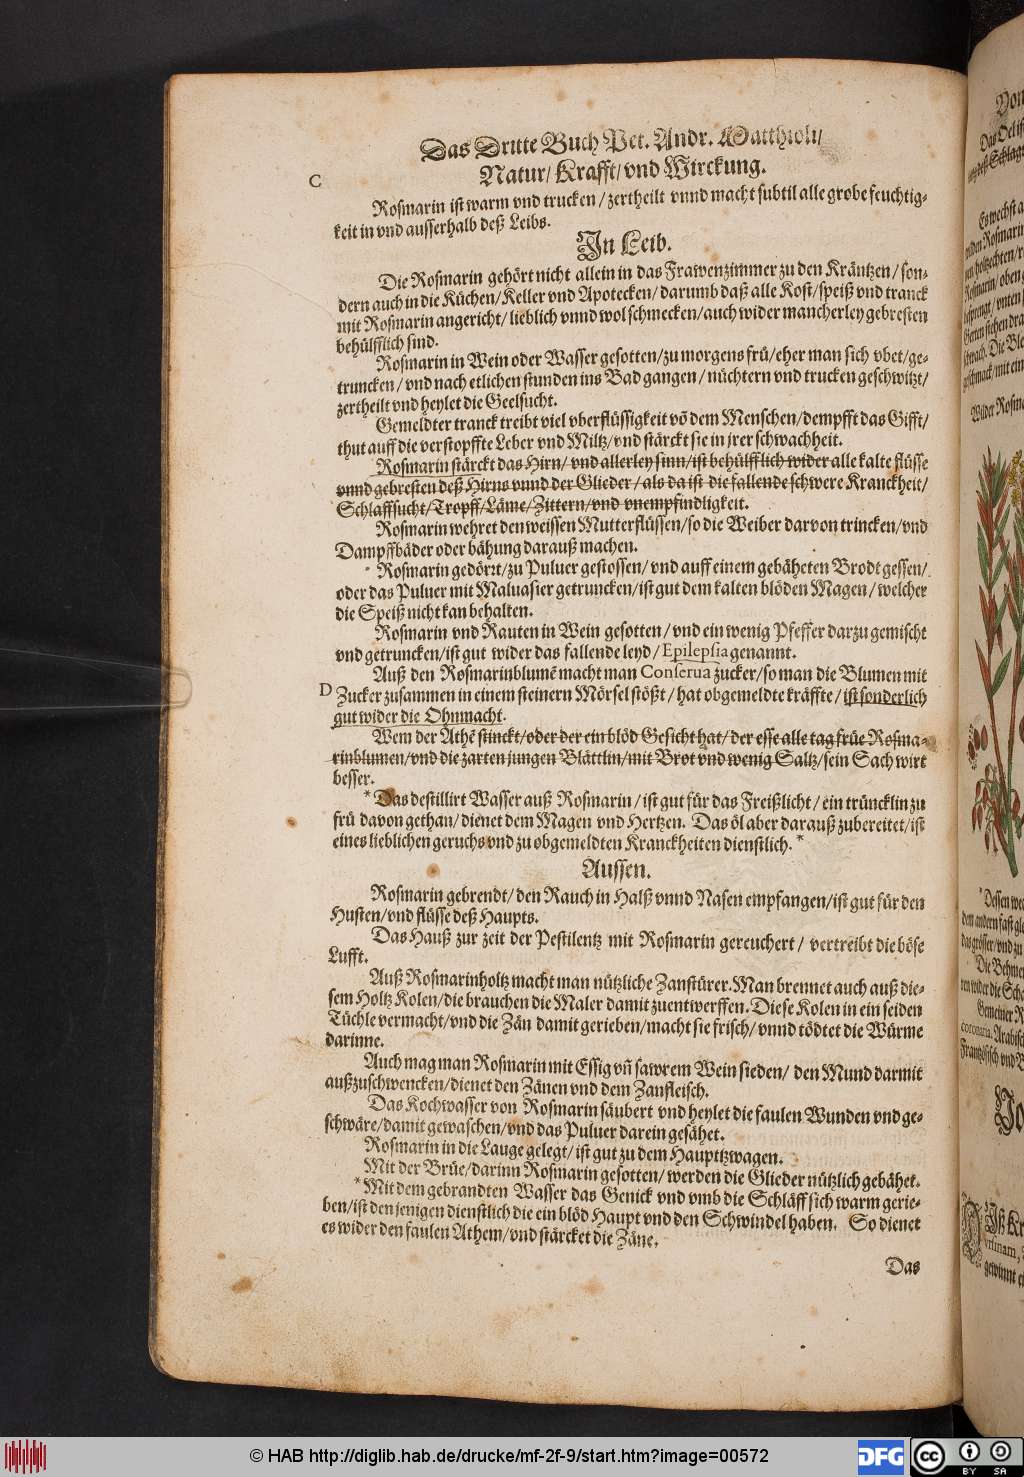 Das Dritte Buch Pet. Andr. Matthioli/
Natur/ Krafft/ vnd Wirckung.
C
Roſmarin iſt warm vnd trucken / zertheilt vnnd macht ſubtil alle grobe feuchtig⸗
keit in vnd auſſerhalb deß Leibs.
In Leib.
Die Roſmarin gehört nicht allein in das Frawenzimmer zu den Kräntzen / ſon⸗
dern auch in die Küchen/ Keller vnd Apotecken/ darumb daß alle Koſt/ ſpeiß vnd tranck
mit Roſmarin angericht/ lieblich vnnd wol ſchmecken/ auch wider mancherley gebreſten
behülfflich ſind.
Roſmarin in Wein oder Waſſer geſotten/ zu morgens frü/ eher man ſich vbet/ ge⸗
truncken / vnd nach etlichen ſtunden ins Bad gangen / nüchtern vnd trucken geſchwitzt/
zertheilt vnd heylet die Geelſucht.
Gemeldter tranck treibt viel vberflüſſigkeit võ dem Menſchen/ dempfft das Gifft/
thut auff die verſtopffte Leber vnd Miltz/ vnd ſtärckt ſie in jrer ſchwachheit.
Roſmarin ſtärckt das Hirn/ vnd allerley ſinn/ iſt behülfflich wider alle kalte flüſſe
vnnd gebreſten deß Hirns vnnd der Glieder / als da iſt die fallende ſchwere Kranckheit/
Schlaffſucht/ Tropff/ Läme/ Zittern/ vnd vnempfindligkeit.
Roſmarin wehret den weiſſen Mutterflüſſen/ ſo die Weiber darvon trincken/ vnd
Dampffbäder oder bähung darauß machen.
* Roſmarin gedörrt/ zu Puluer geſtoſſen/ vnd auff einem gebäheten Brodt geſſen/
oder das Puluer mit Maluaſier getruncken/ iſt gut dem kalten blöden Magen / welcher
die Speiß nicht kan behalten.
Roſmarin vnd Rauten in Wein geſotten / vnd ein wenig Pfeffer darzu gemiſcht
vnd getruncken/ iſt gut wider das fallende leyd / Epilepſia genannt.
Auß den Roſmarinblumẽ macht man Conſerua zucker/ ſo man die Blumen mit
D
Zucker zusammen in einem ſteinern Mörſel ſtößt / hat obgemeldte kräffte / iſt ſonderlich
gut wider die Ohnmacht.
Wem der Athẽ ſtinckt/ oder der ein blöd Geſicht hat/ der eſſe alle tag früe Roſma⸗
rinblumen/ vnd die zarten jungen Blättlin/ mit Brot vnd wenig Saltz/ ſein Sach wirt
beſſer.
* Das deſtillirt Waſſer auß Roſmarin / iſt gut für das Freißlicht / ein trüncklin zu
frü davon gethan/ dienet dem Magen vnd Hertzen. Das öl aber darauß zubereitet/ iſt
eines lieblichen geruchs vnd zu obgemeldten Kranckheiten dienſtlich. *
Auſſen.
Roſmarin gebrendt/ den Rauch in Halß vnnd Naſen empfangen/ iſt gut für den
Huſten/ vnd flüſſe deß Haupts.
Das Hauß zur zeit der Peſtilentz mit Roſmarin gereuchert / vertreibt die böſe
Lufft.
Auß Roſmarinholtz macht man nützliche Zanſtürer. Man brennet auch auß die⸗
ſem Holtz Kolen/ die brauchen die Maler damit zuentwerffen. Dieſe Kolen in ein ſeiden
Tüchle vermacht/ vnd die Zän damit gerieben/ macht ſie friſch/ vnnd tödtet die Würme
darinne.
Auch mag man Roſmarin mit Eſſig vñ ſawrem Wein ſieden/ den Mund darmit
außzuſchwencken/ dienet den Zänen vnd dem Zanfleiſch.
Das Kochwaſſer von Roſmarin ſäubert vnd heylet die faulen Wunden vnd ge⸗
ſchwäre/ damit gewaſchen/ vnd das Puluer darein geſähet.
Roſmarin in die Lauge gelegt/ iſt gut zu dem Haupttzwagen.
Mit der Brüe/ darinn Roſmarin geſotten/ werden die Glieder nützlich gebähet.
* Mit dem gebrandten Waſſer das Genick vnd vmb die Schläff ſich warm gerie⸗
ben/ iſt den jenigen dienſtlich die ein blöd Haupt vnd den Schwindel haben. So dienet
es wider den faulen Athem/ vnd ſtärcket die Zäne.
Das
© HAB http://diglib.hab.de/drucke/mf-2f-9/start.htm?image=00572
DFG
cc
BY SA